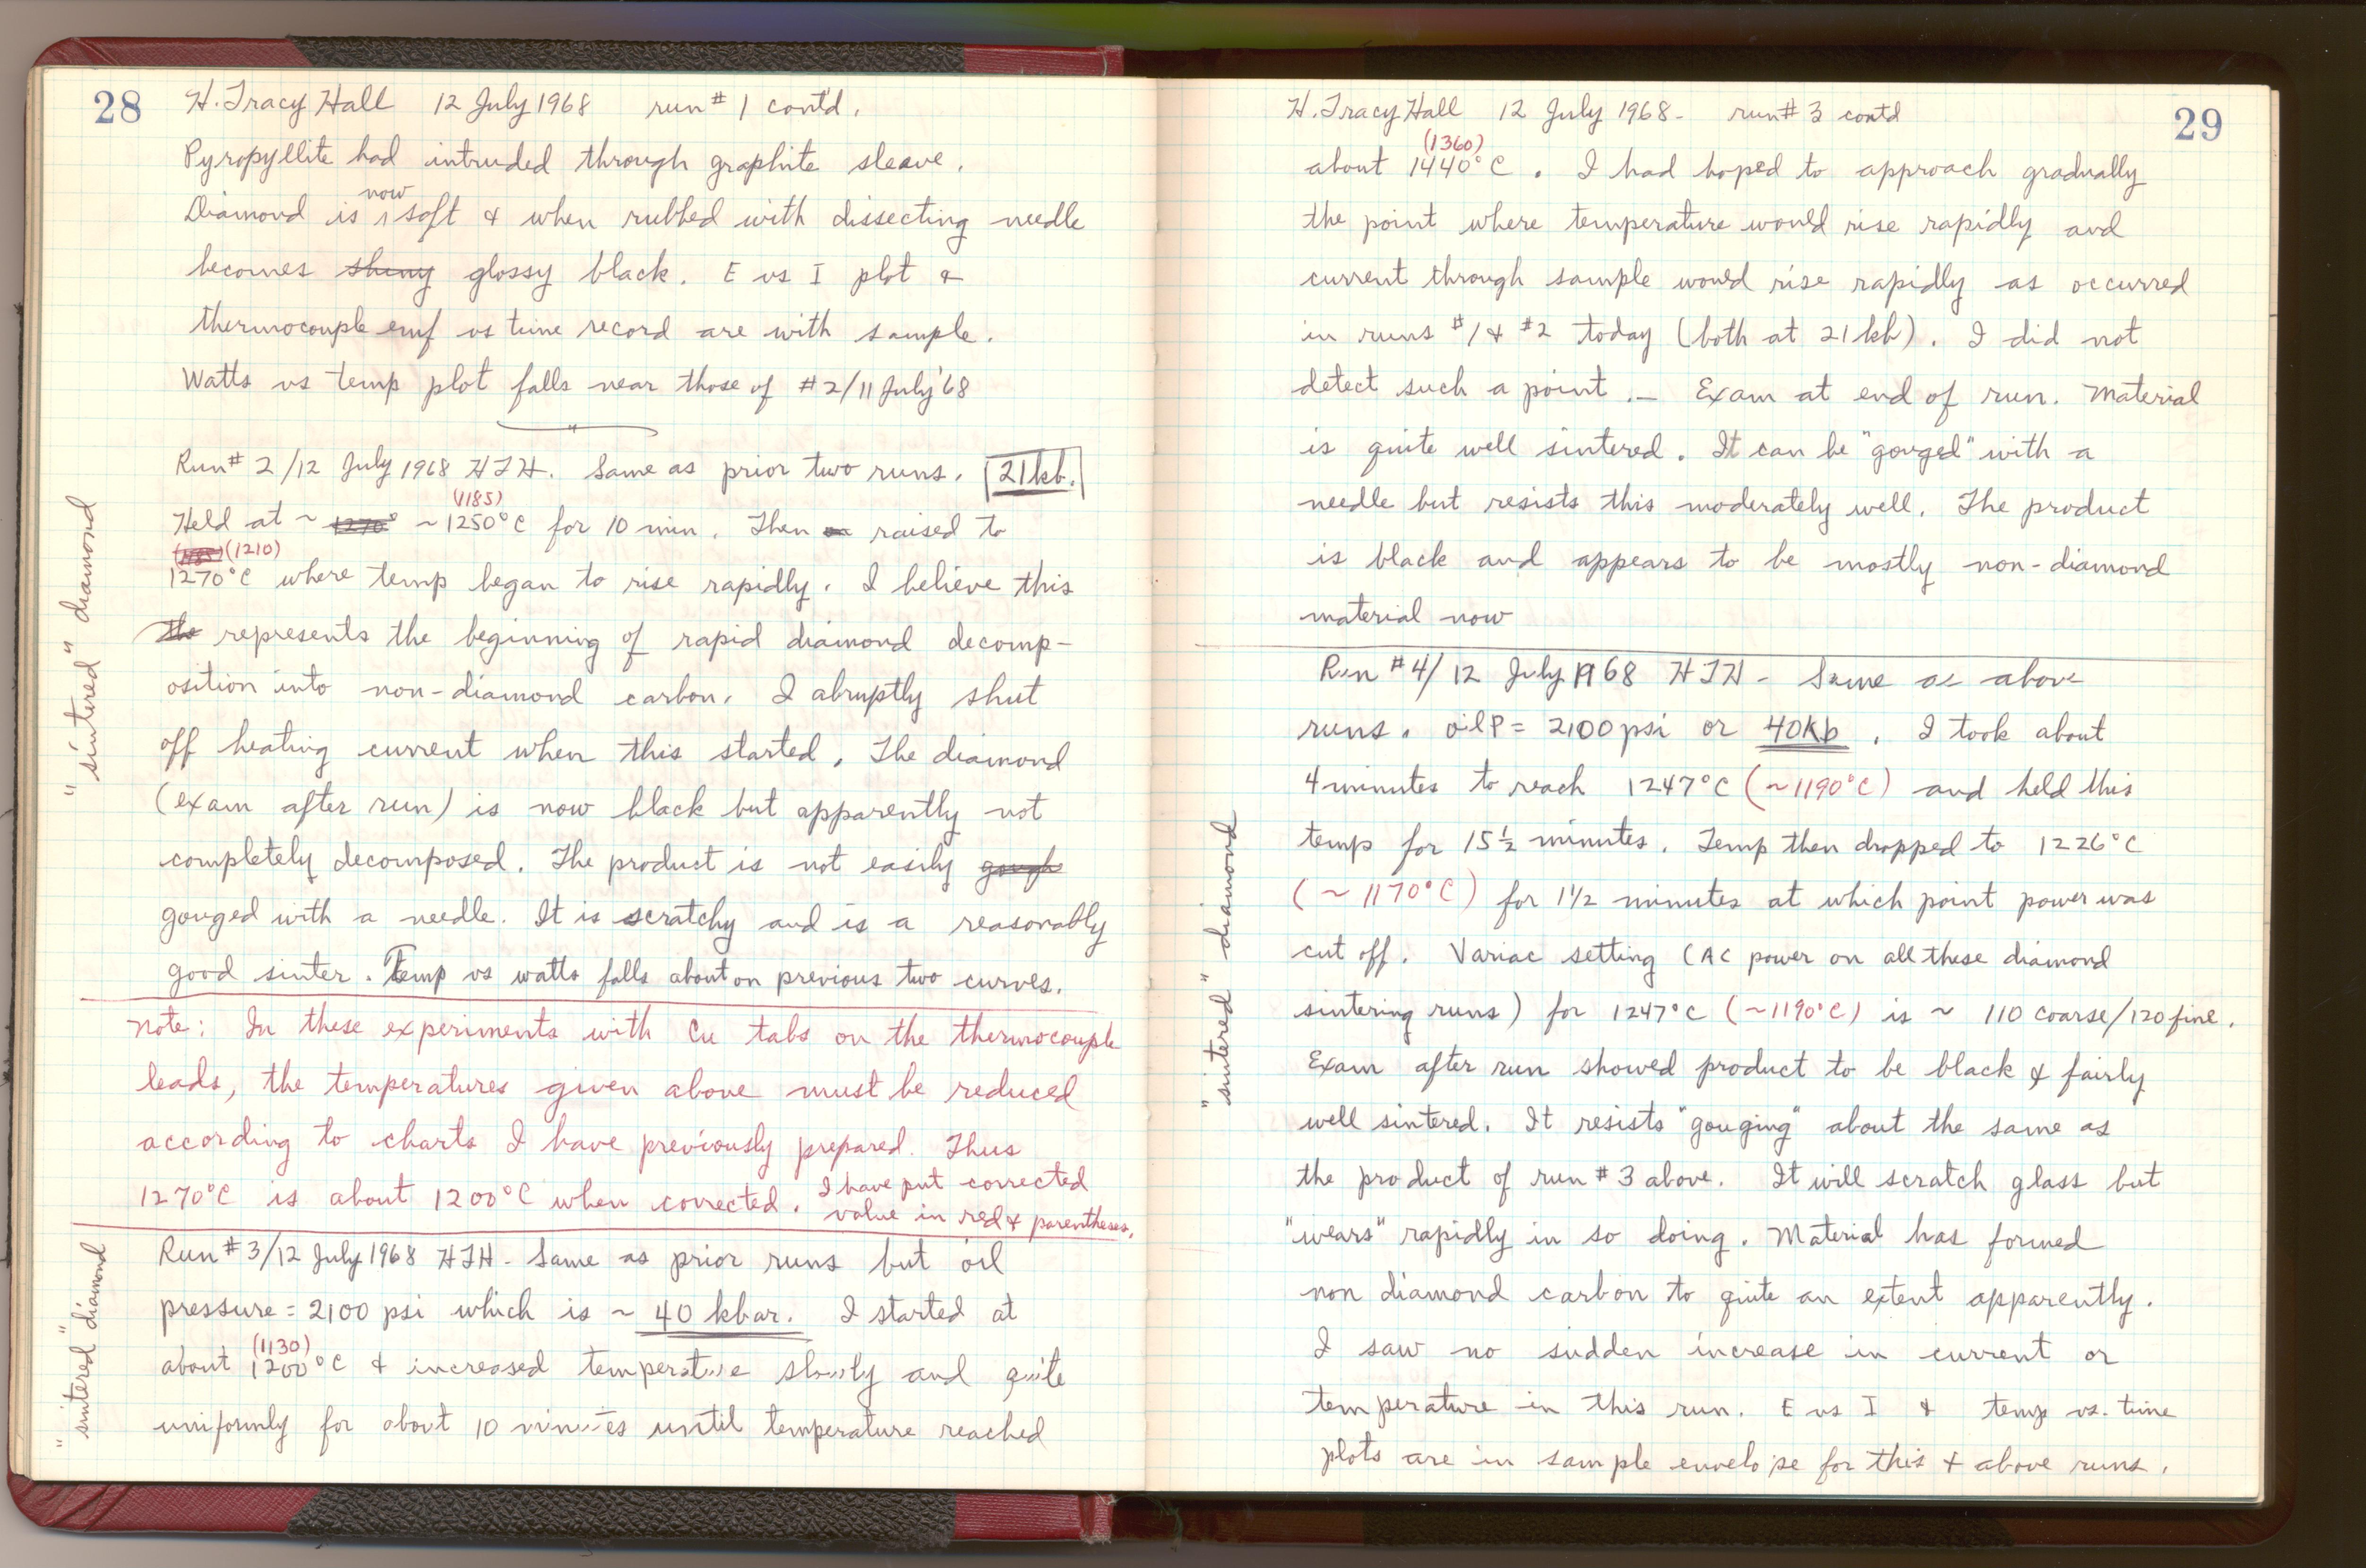 28 H. Tracy Hall 12 July 1968 run # 1 contd.
Pyropyllite had intruded through graphite sleeve.
now
Diamond is soft & when rubbed with dissecting needle
becomes shiny glossy black. E vs I plot &
thermocouple emf vs time record are with sample.
Watts vs temp plot falls near those of #2/11 July '68
Run # 2/12 July 1968 HTH. Same as prior two runs. 21 kb.
(1185)
Held at ~ 1270° ~1250°C for 10 min. Then raised to
(1210)
1270°C where temp began to rise rapidly. I believe this
the represents the beginning of rapid diamond decomp-
osition into non-diamond carbon. I abruptly shut
off heating current when this started. The diamond
(exam after run) is now black but apparently not
completely decomposed. The product is not easily gough
gouged with a needle. It is scratchy and is a reasonably
good sinter. Temp vs watts falls about on previous two curves.
"sintered" diamond
Note: In these experiments with Cu tabs on the thermocouple
leads, the temperatures given above must be reduced
according to charts I have previously prepared. Thus
1270°C is about 1200°C when corrected. I have put corrected
value in red & parentheses.
Run # 3/12 July 1968 HTH - Same as prior runs but oil
pressure = 2100 psi which is ~ 40 kbar. I started at
(1130)
about 1200°C & increased temperature slowly and quite
uniformly for about 10 minutes until temperature reached
"sintered" diamond
H. Tracy Hall 12 July 1968 - run # 3 contd 29
(1360)
about 1440°C. I had hoped to approach gradually
the point where temperature would rise rapidly and
current through sample would rise rapidly as occurred
in runs #1 & #2 today (both at 21 kb). I did not
detect such a point. - Exam at end of run. Material
is quite well sintered. It can be "gouged" with a
needle but resists this moderately well. The product
is black and appears to be mostly non-diamond
material now
Run # 4/12 July 1968 HTH - Same as above
runs. oil P = 2100 psi or 40Kb. I took about
4 minutes to reach 1247°C (~1190°C) and held this
temp for 15 1/2 minutes. Temp then dropped to 1226°C
(~1170°C) for 1 1/2 minutes at which point power was
cut off. Variac setting (AC power on all these diamond
sintering runs) for 1247°C (~1190°C) is ~ 110 coarse/120 fine.
Exam after run showed product to be black & fairly
well sintered. It resists "gouging" about the same as
the product of run # 3 above. It will scratch glass but
"wears" rapidly in so doing. Material has formed
non diamond carbon to quite an extent apparently.
I saw no sudden increase in current or
temperature in this run. E vs I & temp vs. time
plots are in sample envelope for this & above runs.
"sintered" diamond